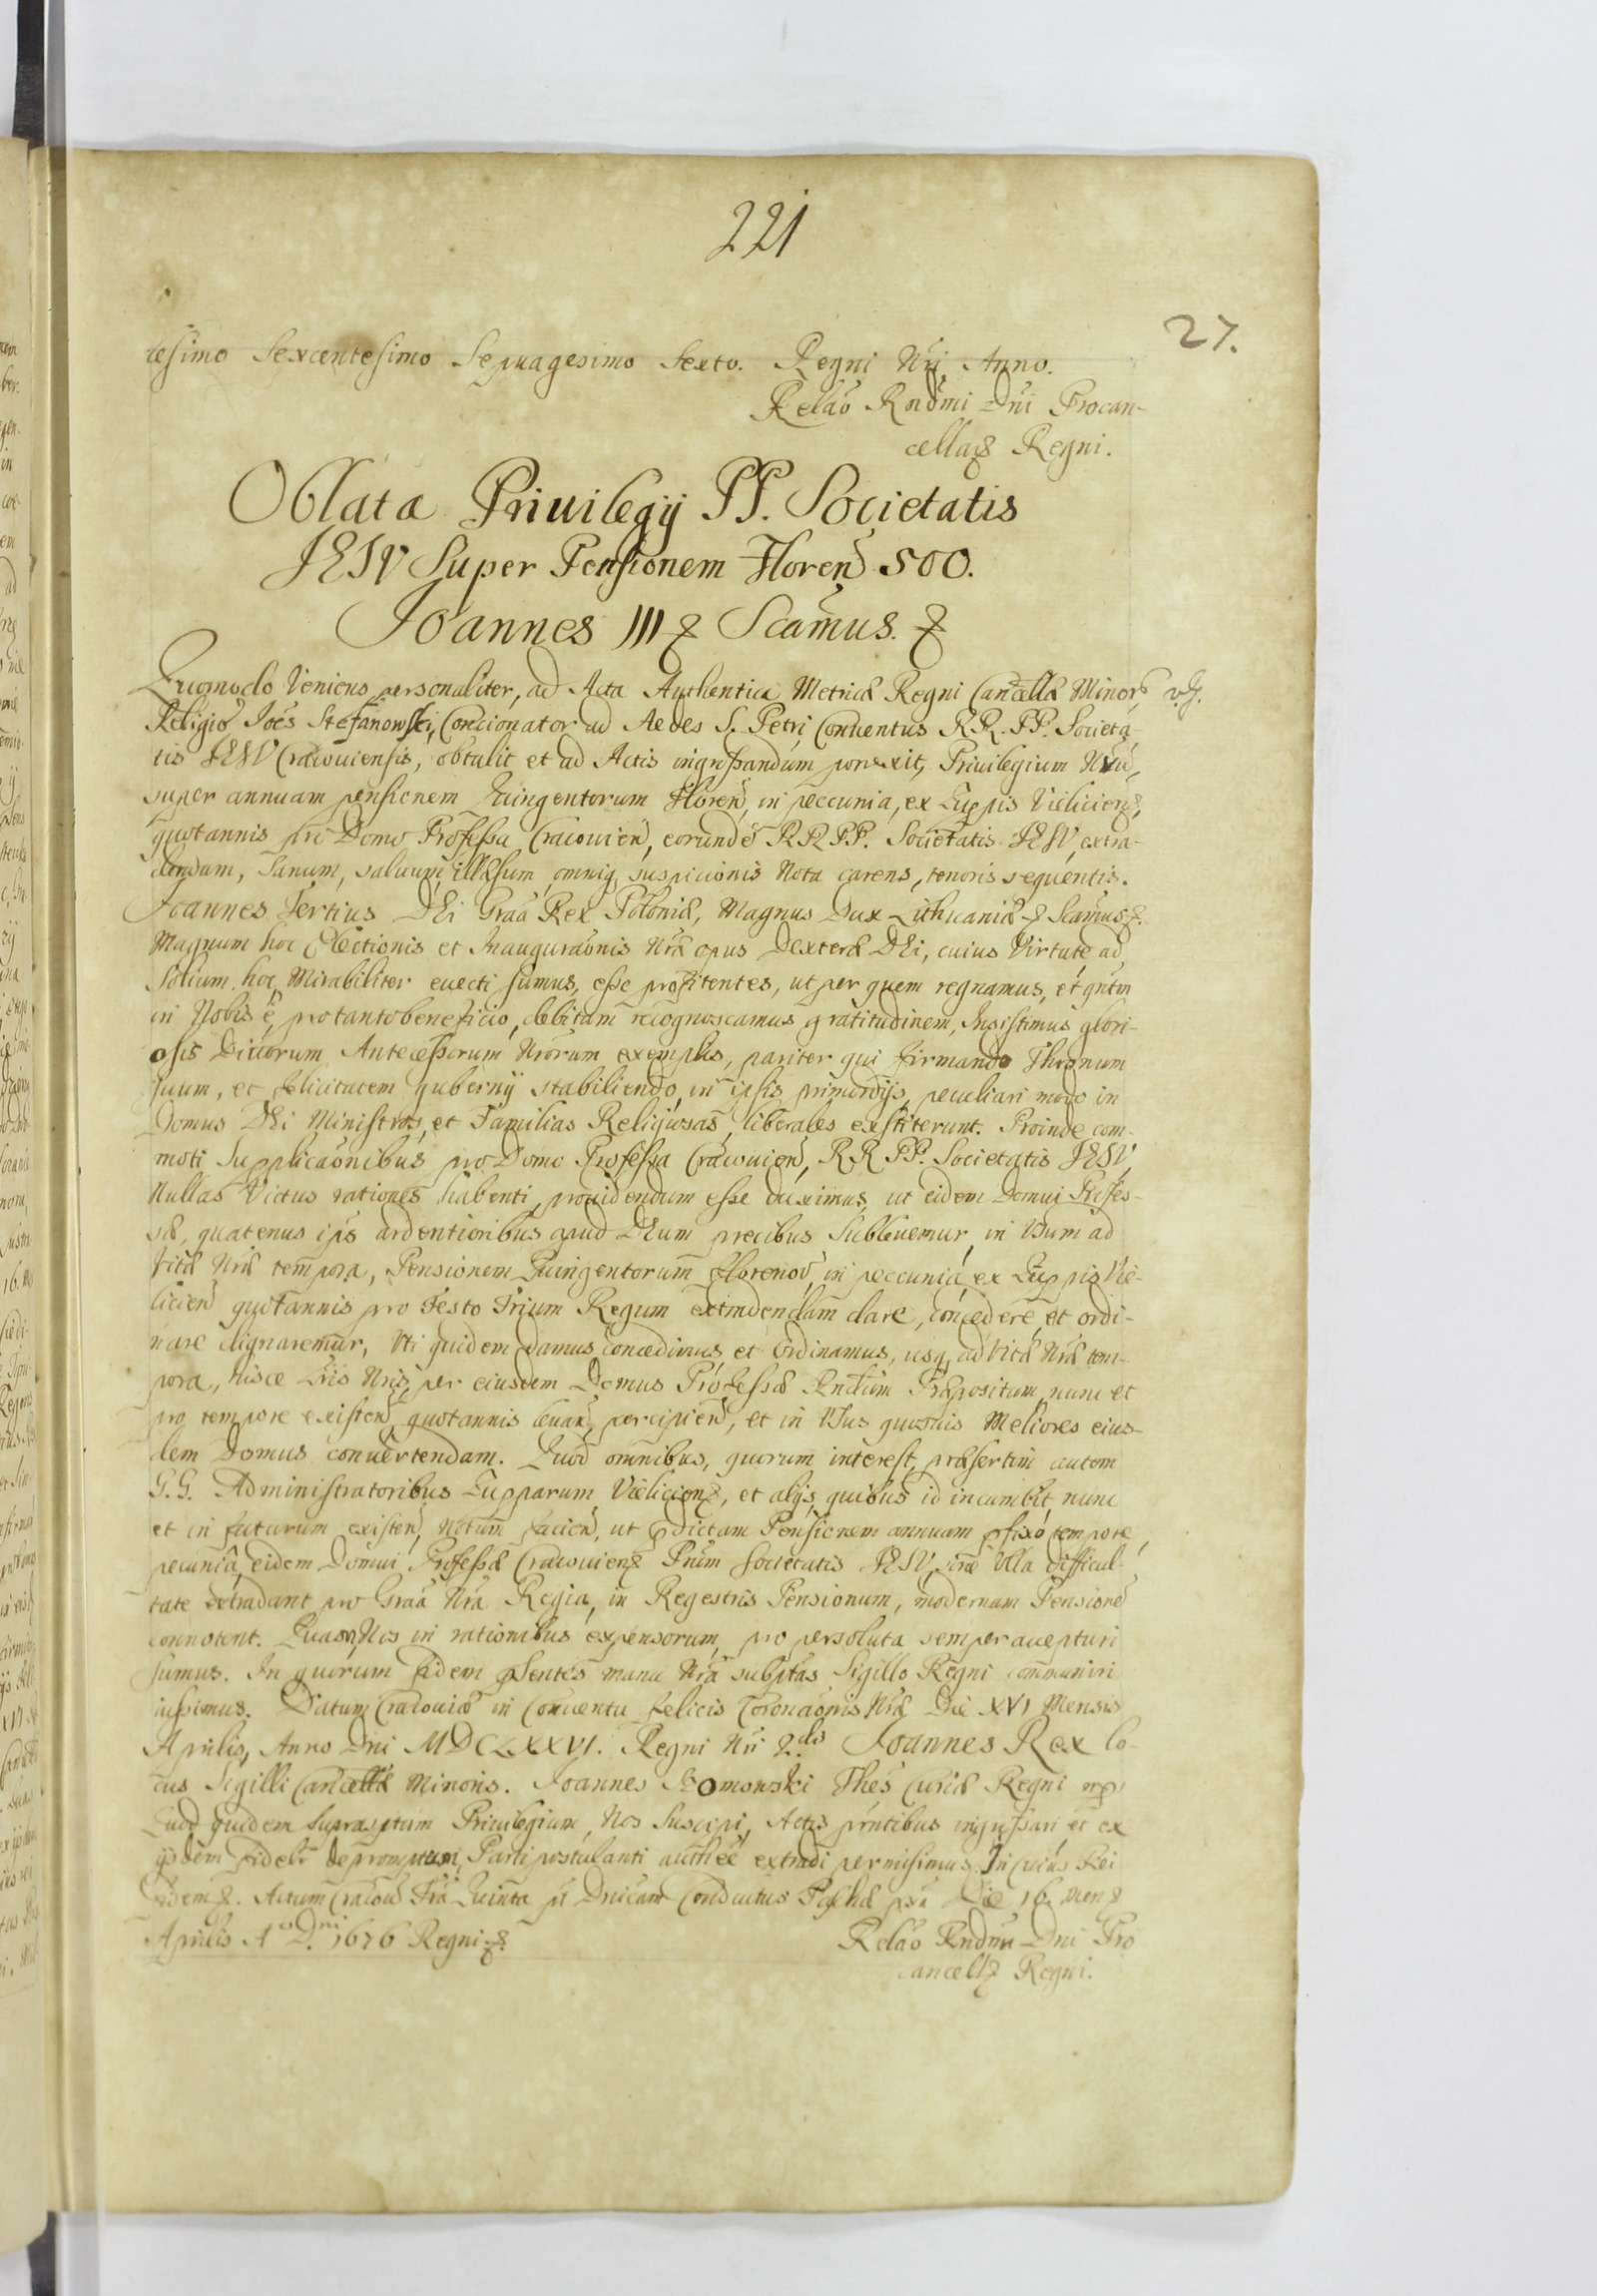 221
27.
lesimo Sexcentesimo Septuagesimo Sexto. Regni Nri Anno.
Relao Rndmi Dni Procan-
cellaꝝ Regni.
Oblata Priuilegij PP. Societatis
JESV Super Pensionem Floren 500.
Joannes III ꝛ Scamus. ꝛ
Quomodo Veniens personaliter, ad Acta Authentica Metricæ Regni Cancellæ Minor
Religios Joes Stefanowski, Concionator ad Aedes S. Petri Conuentus R.R. PP. Societa-
tis JESV Cracouiensis, obtulit et ad Actis ingrossandum porrexit, Priuilegium Nrũ,
super annuam pensionem Quingentorum Floren, in peccunia, ex Zuppis Vieliciens,
quotannis pro Domo Professa Cracouien, eorunde RR PP. Societatis JESV, extra-
dendam, Sanum, saluum, illæsum, omniq suspicionis Nota carens, tenoris sequentis.
Joannes Tertius DEi Graa Rex Poloniæ, Magnus Dux Lithuaniæ ꝛ Scamus ꝛ.
Magnum hoc Electionis et Inauguraonis Nræ opus Dexteræ DEi, cuius Virtute ad
Solium hoc Mirabiliter euecti sumus, esse profitentes, ut per quem regnamus, et qntm
in Nobis e, pro tanto beneficio, debitam recognoscamus gratitudinem, Insistimus glori-
osis Diuorum Antecessorum Nrorum exemplis, pariter qui firmando Thronum
suum, et felicitatem gubernij stabiliendo, in ipsis primordijs, peculiari modo in
Domus DEi Ministros, et Familias Religiosas, liberales exstiterunt. Proinde com-
moti Supplicaonibus pro Domo Professa Cracouien, RR PP. Societatis JESV,
Nullas Victus rationes habenti, prouidendum esse duximus, ut eidem Domui Profes-
sæ, quatenus ips ardentioribus apud DEum precibus Subleuemur, in Vsum ad
Vitæ Nræ tempora, Pensionem Quingentorum florenor, in peccunia, ex Zuppis Vie-
licien quotannis pro Festo Trium Regum extradendam dare, concedere, et ordi-
nare dignaremur, Vti quidem damus concedimus et ordinamus, usq ad Vitæ Nræ tem-
pora, hisce Lris Nris, per eiusdem Domus Professæ Rndum Præpositum nunc et
pro tempore existen, quotannis leuan, percipien, et in Vsus quosuis Meliores eius-
dem Domus conuertendam. Quod omnibus, quorum interest, præsertim autem
G.G. Administratoribus Zupparum Vielicien, et alijs, quibus id incumbit nunc
et in futurum existen, Notum facien, ut pdictam Pensionem annuam pfixo tempore,
pecunia, eidem Domui Professæ Cracouien Prum Societatis JESV, sine Vlla difficul-
tate extradant pro Graa Nra Regia, in Regestris Pensionum, modernam Pensione
connotent. Quam Nos in rationibus expensorum, pro persoluta semper accepturi
sumus. In quorum fidem psentes manu Nra subscptas Sigillo Regni communiri
iussimus. Datum Cracouiæ in Conuentu felicis Coronaonis Nræ Die XVI Mensis
Aprilis, Anno Dni MDCLXXVI. Regni Nri 2do Joannes Rex Lo-
cus Sigilli Cancellæ Minoris. Joannes Szomowski Thes Curiæ Regni mp
Quod quidem Suprascptum Priuilegium, Nos Suscepi, Actis prntibus ingrossari et ex
ijsdem fidelr depromptum, Parti postulanti authee extradi permisimus. In cuius Rei
fidem ꝛ. Actum Cracou Fria Quinta pt Dnicam Conductus Paschæ Die 16 Mens
Aprilis Ao Dni 1676 Regni ꝛ.
Relao Rndmi Dni Pro
cancellꝝ Regni.